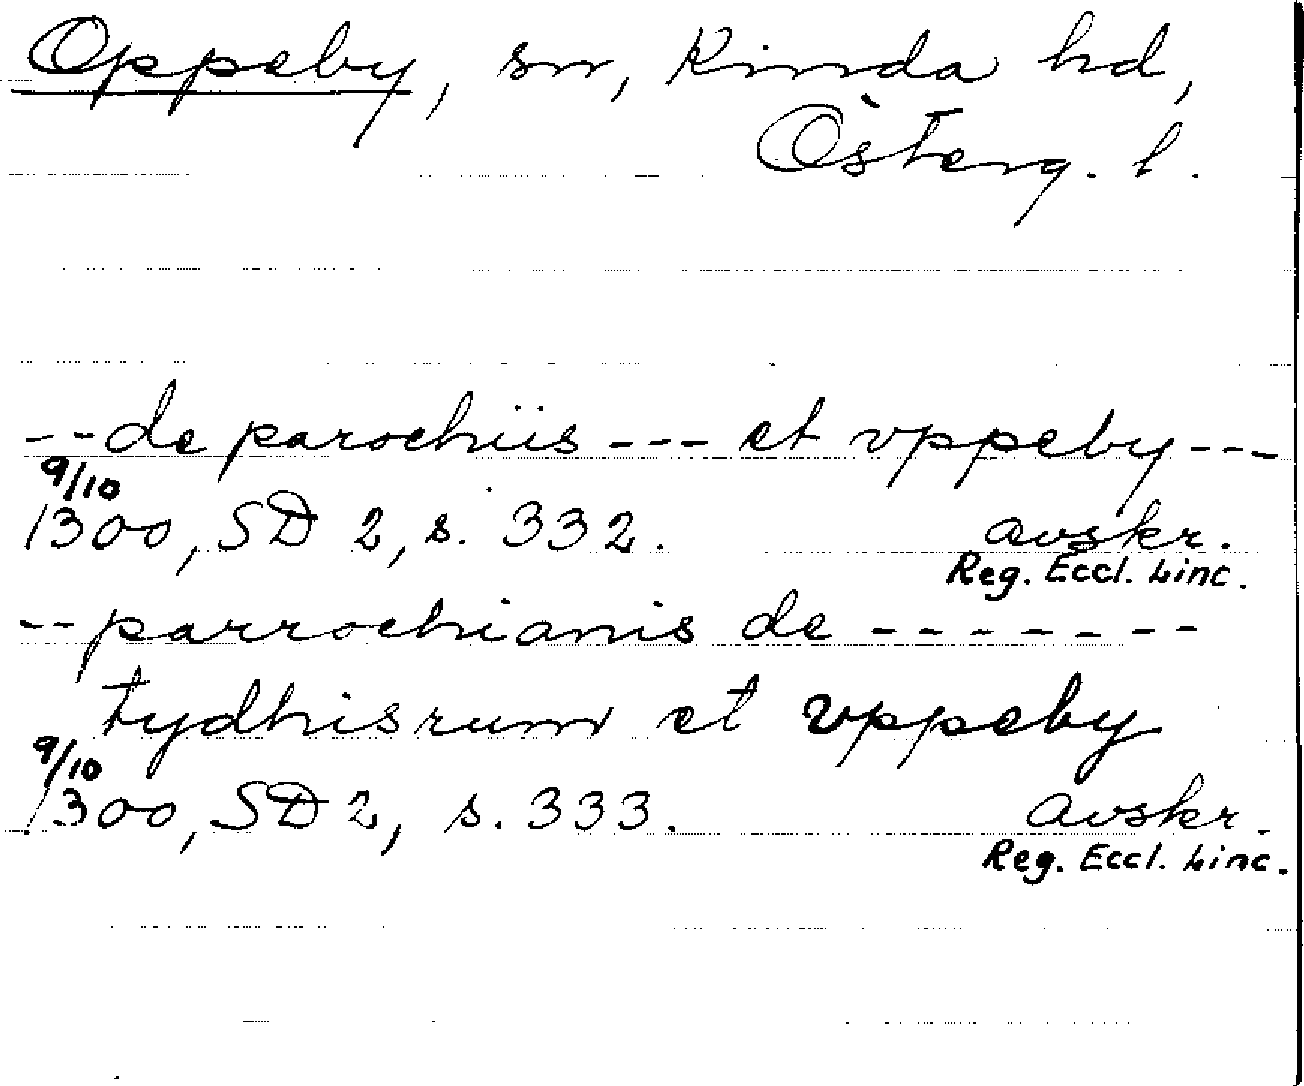 Oppeby, sn, Kinda hd,
Österg. l.
--de parochiis --- et vppeby ---
9/10
1300, SD 2, s. 332. avskr.
Reg. Eccl. Linc.
--parrochianis de -------
tydhisrum et vppeby
9/10
1300, SD 2, s. 333. avskr.
Reg. Eccl. Linc.